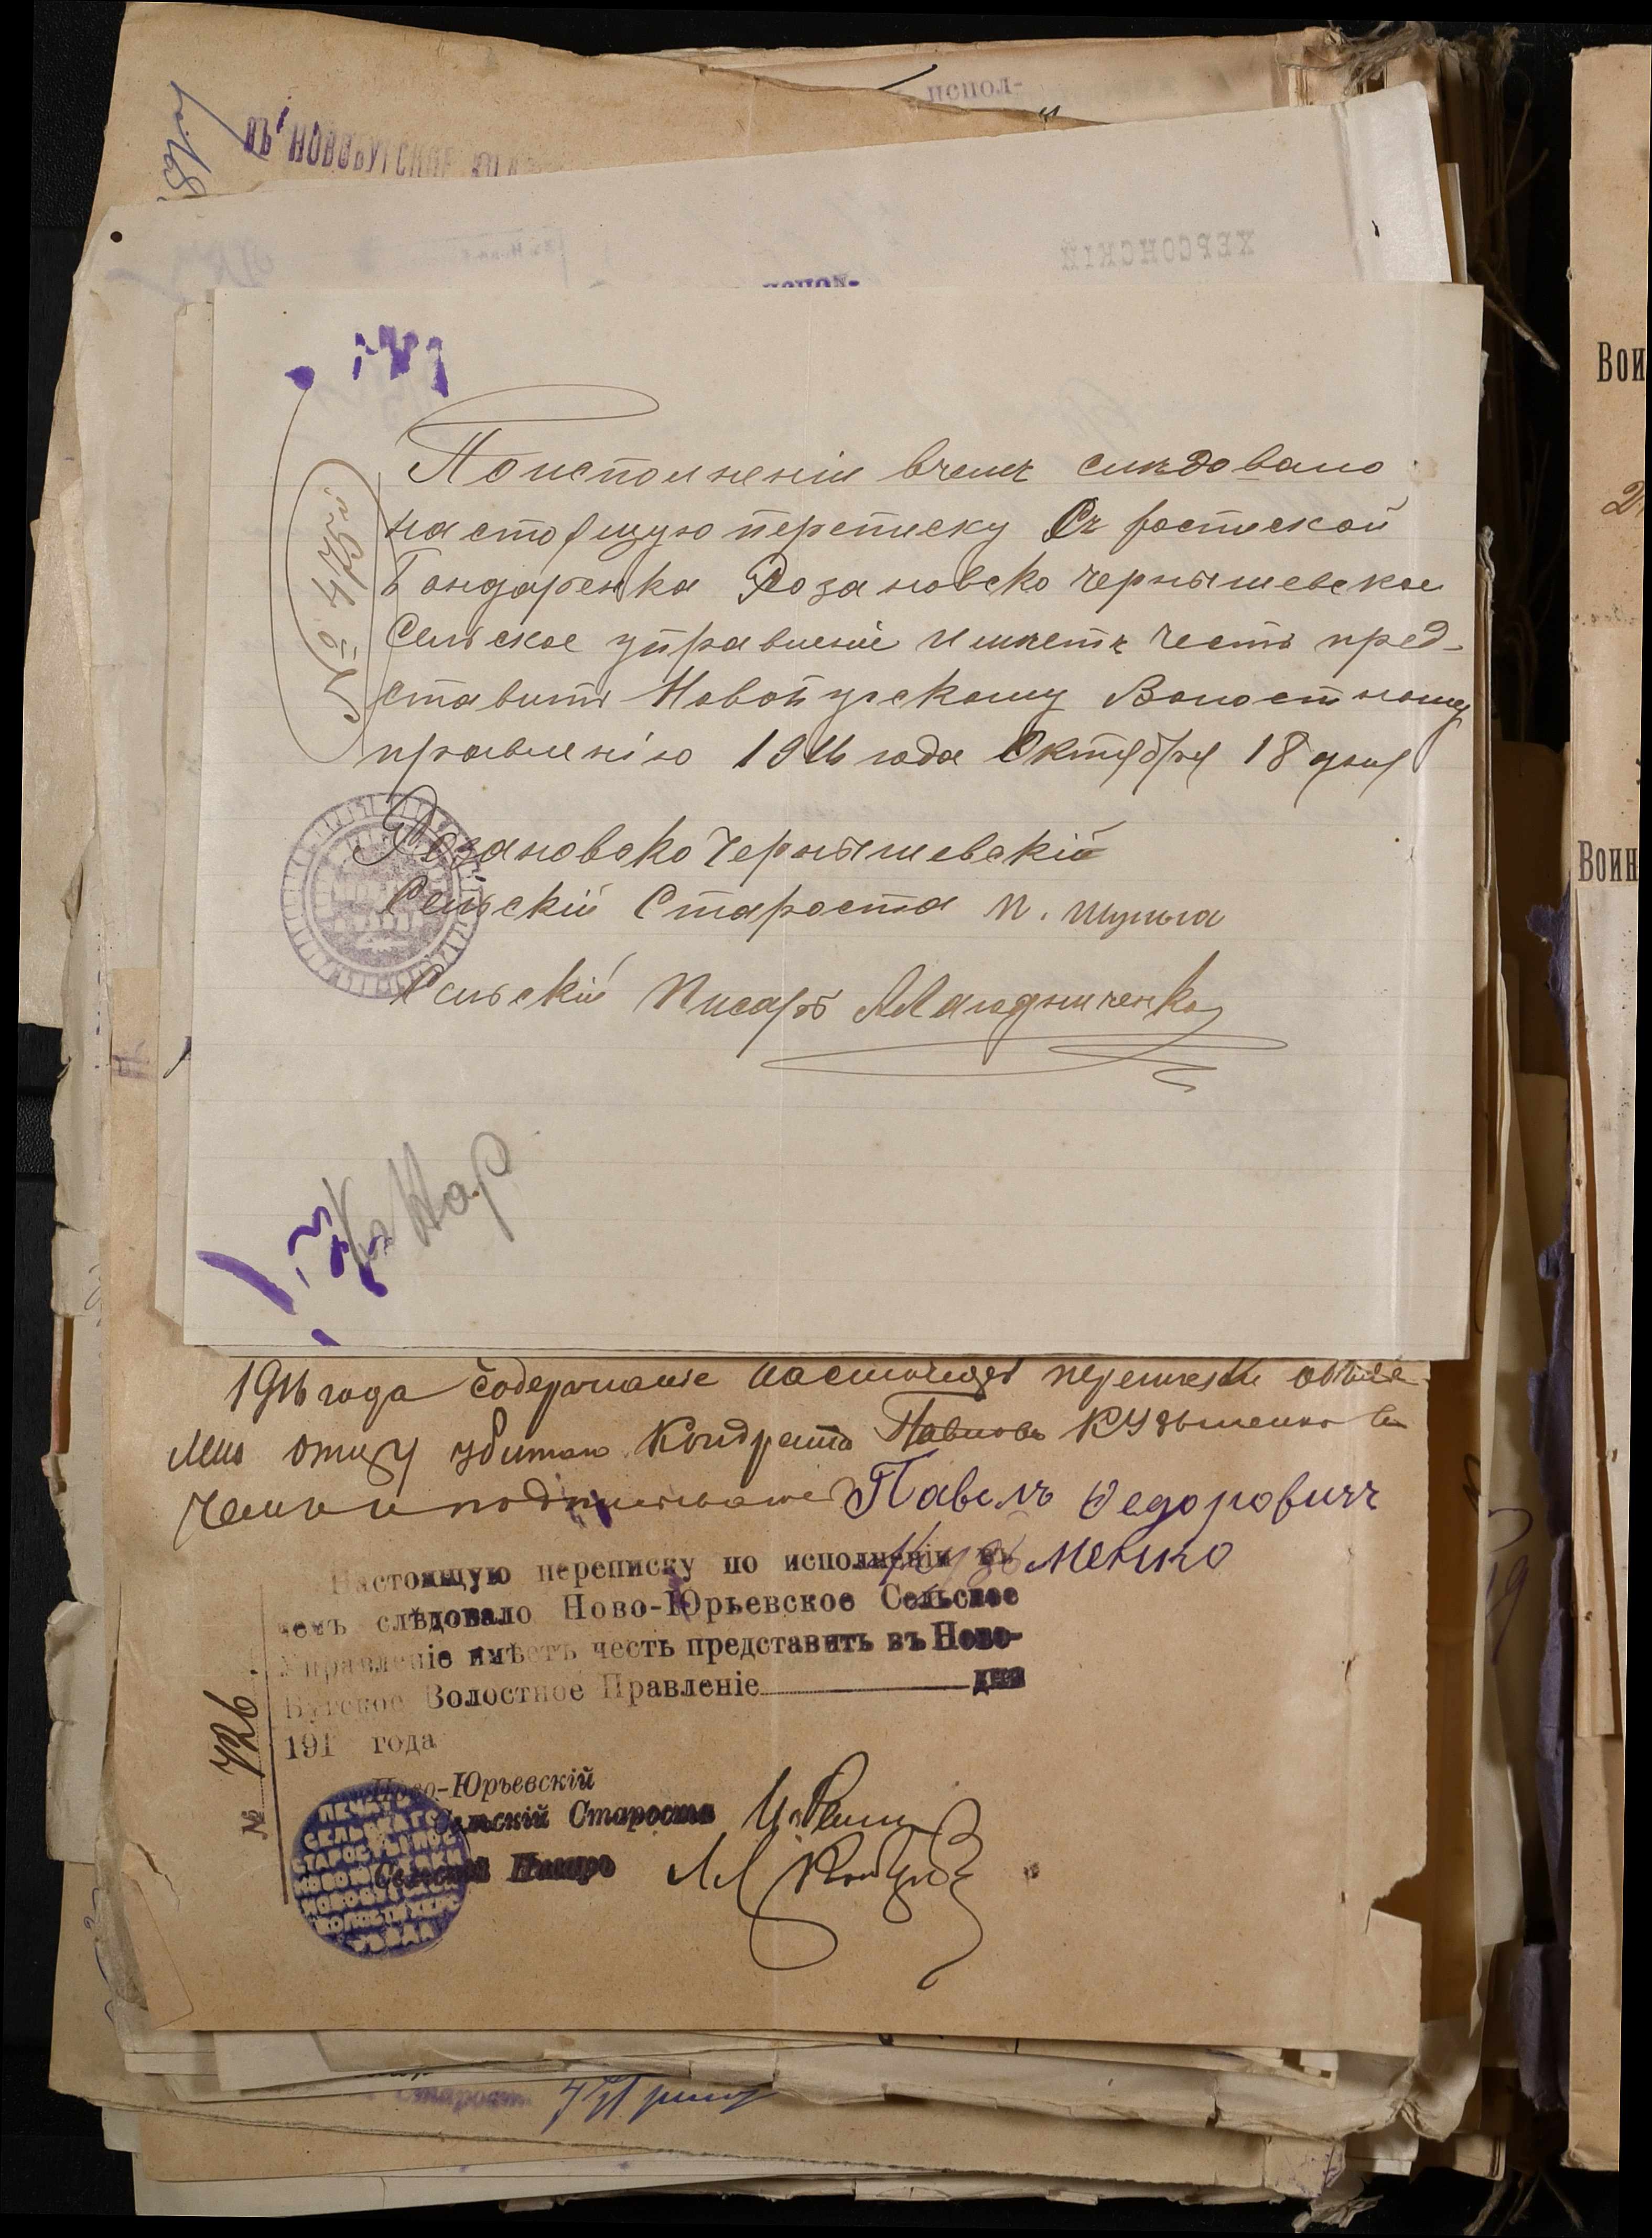 испол-
ВЪ НОВОБУГСКОЕ
ХЕРСОНСКІЙ
испол-
№ 475й
Поисполненіи вчемъ слѣдовало
настоящую переписку Съ роспиской
Бондаренка Розановско Чернышевское
Сельское управленіе имѣетъ честь пред-
ставить Новобугскому Волостному
правленію 1916 года Октября 18 дня
Розановско Чернышевскій
Сельскій Староста П. Шульга
Сельскій Писарь
1916 года содержаніе настоящей переписки объяв
лено отцу убитаго Кондрата Павлова Кузьменко въ
чемъ и подписываюсь Павелъ Федоровичъ
Кузьменко
Настоящую переписку по исполненіи въ
чемъ слѣдовало Ново-Юрьевское Сельское
Управленіе имѣетъ честь представить въ Ново-
Бугское Волостное Правленіе дня
191 года
№ 726
Ново-Юрьевскій
Сельскій Староста
Сельскій Писарь
ПЕЧАТЬ
СЕЛЬСКАГО
СТАРОСТЫ ПОС
НОВОЮРЬЕВКИ
НОВОБУГСКОЙ
ВОЛОСТИ ХЕРС
УѢЗДА
Старост
Вои
Воин